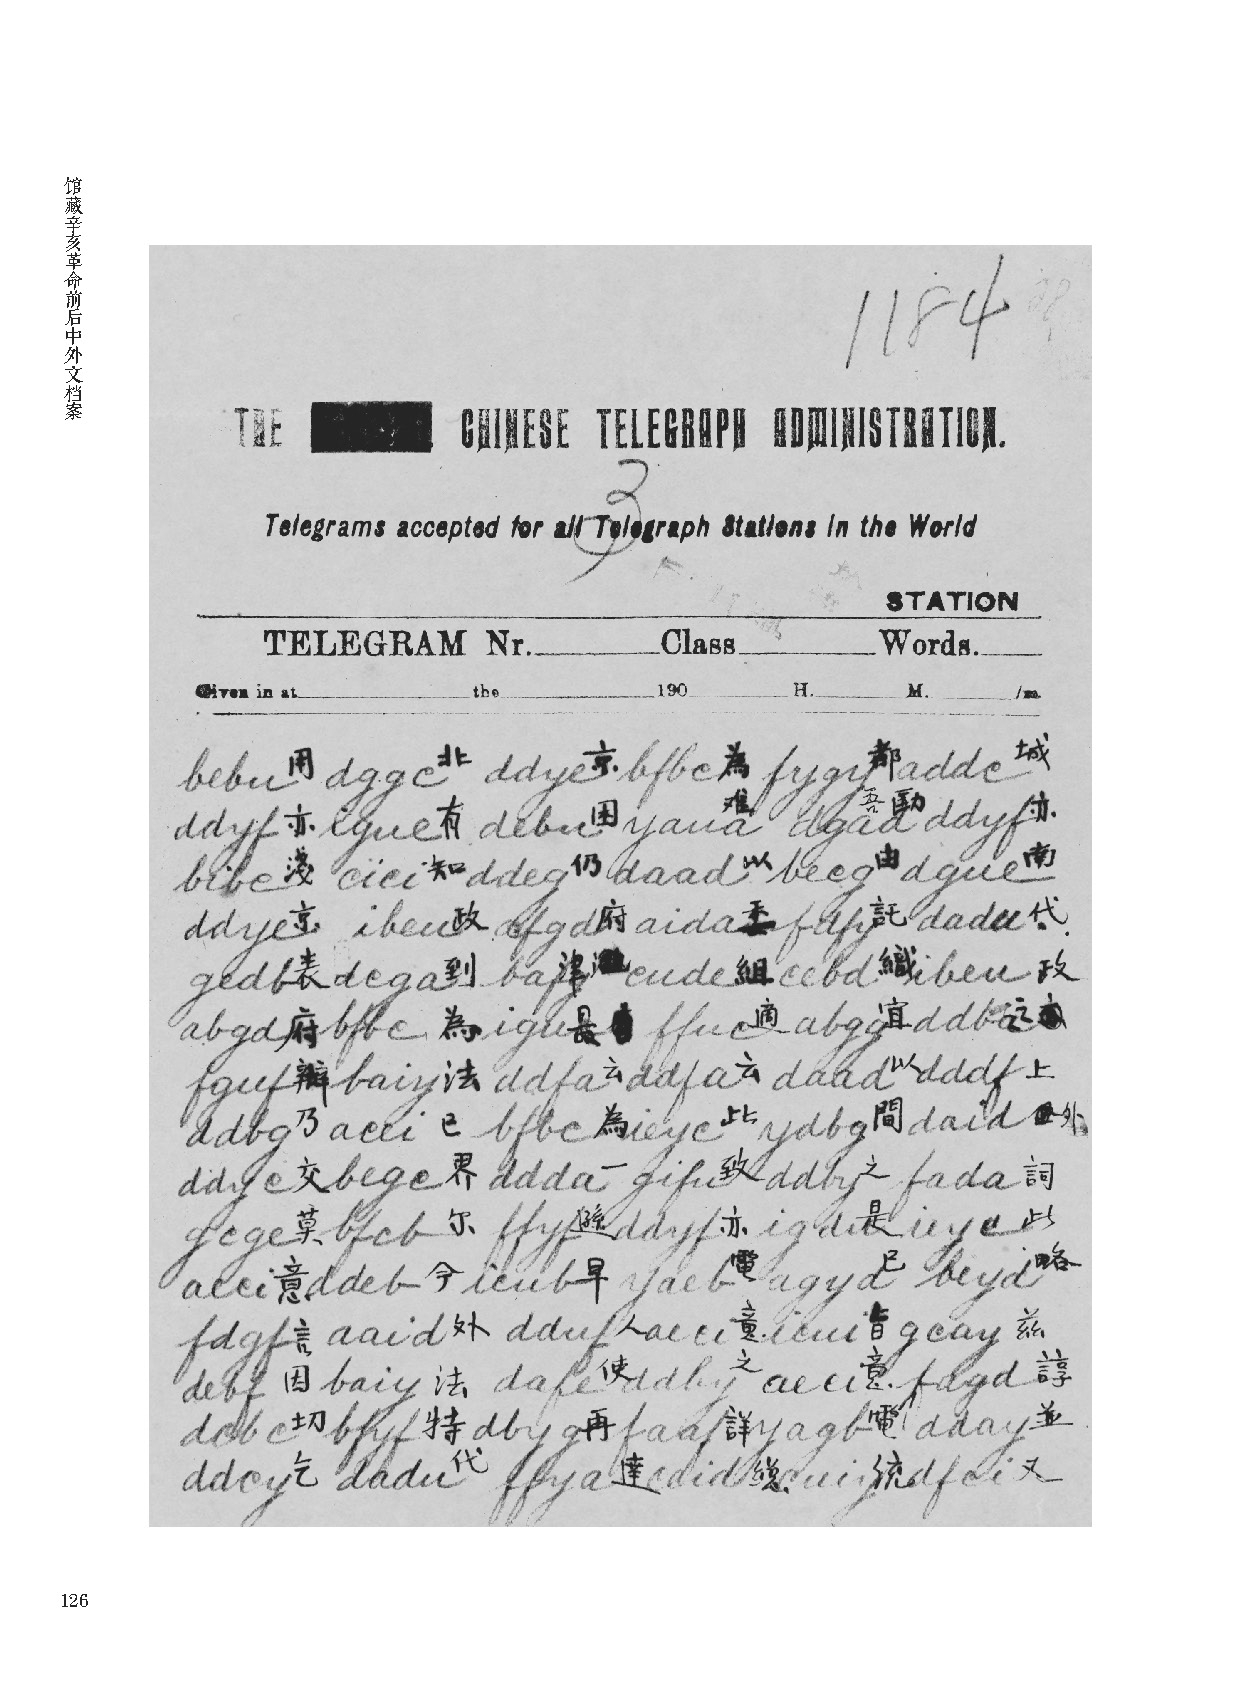 馆藏辛亥革命前后中外文档案
1184
THE CHINESE TELEGRAPH ADMINISTRATION.
3
Telegrams accepted for all Telegraph Stations in the World
STATION
TELEGRAM Nr. Class Words.
Given in at the 190 H. M. /m
bebu用 dggc北 ddye京 bfbc為 fygy都 addc城
ddyf亦 igue有 debu困 yaua难 dgad吾勛 ddyf亦
bibc淺 cici知 ddeg仍 daad以 becg由 dgue南
ddye京 ibeu政 afgd府 aida委 fdfy託 dadu代
gedb表 dcga到 津滙 cude組 cebd織 ibeu政
abgd府 bfbc為 igu是 ffuc適 abgg宜 ddba之
fguf辦 baiy法 ddfa云 ddfa云 daad以 dddf上
ddbg乃 acci已 bfbc為 ieyc此 ydbg間 daid外
ddye交 bege界 ddda一 gifu致 ddby之 fada詞
gcge莫 bfcb尔 ffyf ddyf亦 igdu是 ieyc此
aeci意 ddeb今 icub早 yaeb電 agyd已 beyd略
fdgf言 aaid外 dduf人 aeci意 icui皆 gcay茲
debf因 baiy法 dafe使 ddby之 aeci意 fdgd諄
dcbc切 bfyf特 dbyg再 faaf詳 yagb電 dday並
ddcy乞 dadu代 ffya達 cdid總 cuiy統 dfci又
126